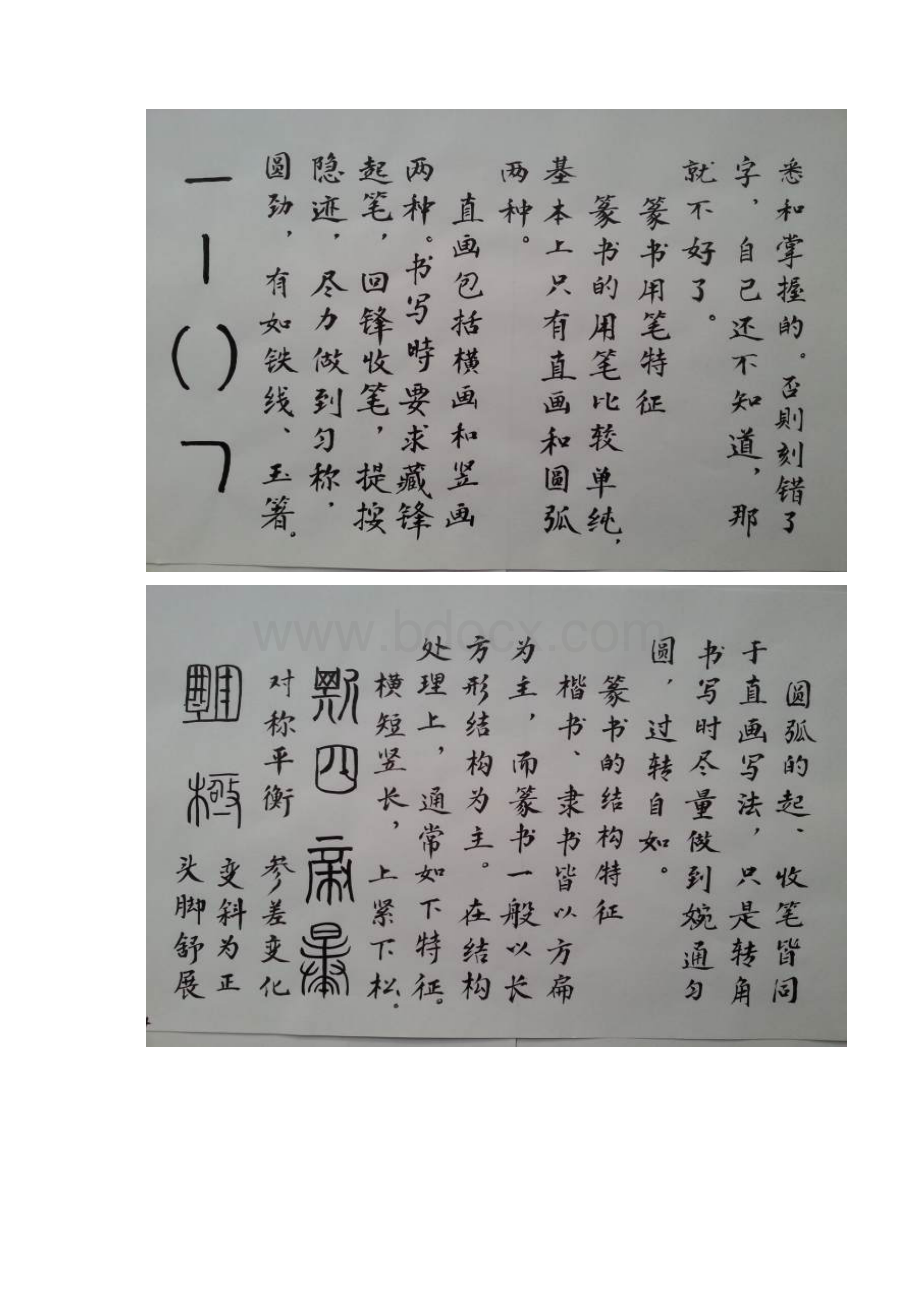 悉和掌握的。否则刻错了
字，自己还不知道，那
就不好了。
篆书用笔特征
篆书的用笔比较单纯，
基本上只有直画和圆弧
两种。
直画包括横画和竖画
两种。书写時要求藏锋
起笔，回锋收笔，提按
隐迹，尽力做到匀称，
圆劲，有如铁线、玉箸。
圆弧的起、收笔皆同
于直画写法，只是转角
书写时尽量做到婉通匀
圆，过转自如。
篆书的结构特征
楷书、隶书皆以方扁
为主，而篆书一般以长
方形结构为主。在结构
处理上，通常如下特征。
横短竖长，上紧下松．
四帝
对称平衡 参差变化
极
变斜为正
头脚舒展
www.bdocx.com